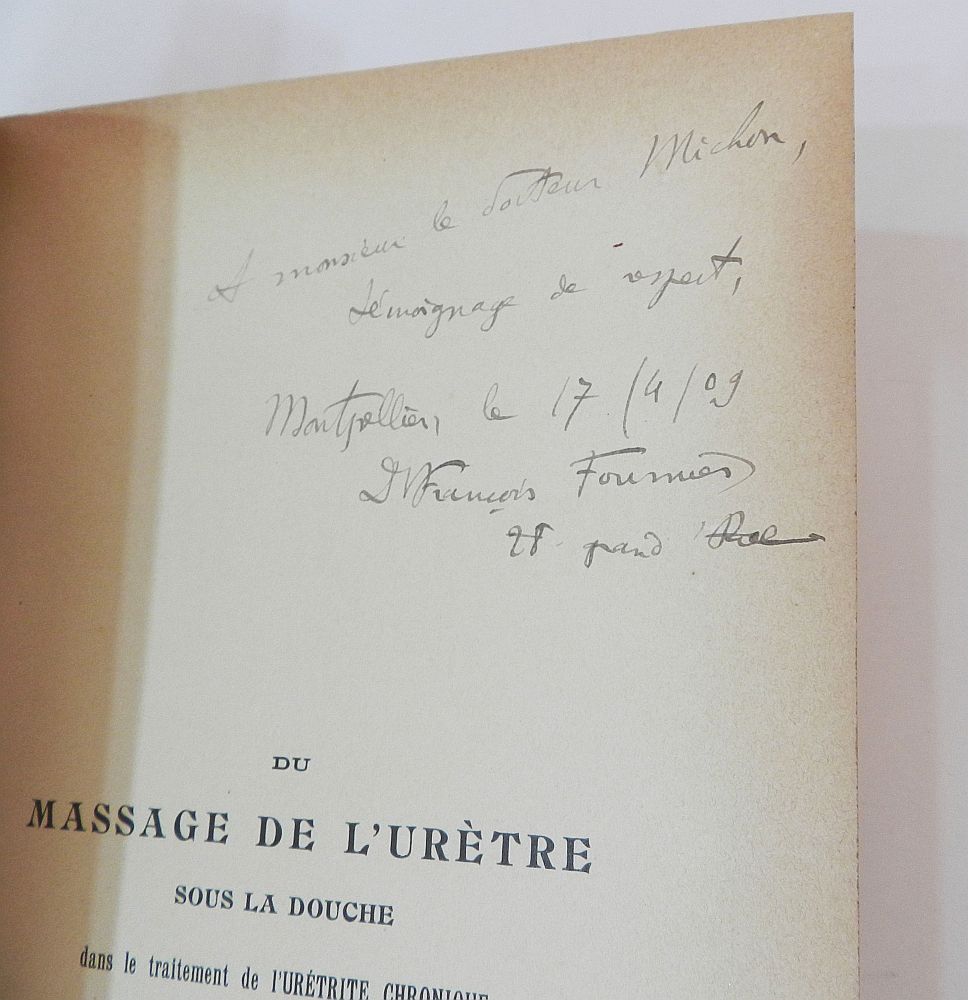 A monsieur le docteur Michon,
témoignage de respect,
Montpellier, le 17/4/09
Dr François Fournier
28 grand Rue
DU
MASSAGE DE L'URÈTRE
SOUS LA DOUCHE
dans le traitement de l'URÉTRITE CHRONIQUE